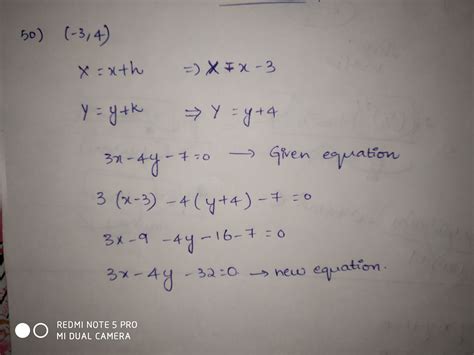 50) (-3,4)
X = x+h ⇒ X = x-3
Y = y+k ⇒ Y = y+4
3x-4y-7=0 → Given equation
3 (x-3) -4(y+4) -7=0
3x-9 -4y-16-7=0
3x-4y -32=0 → new equation.
REDMI NOTE 5 PRO
MI DUAL CAMERA